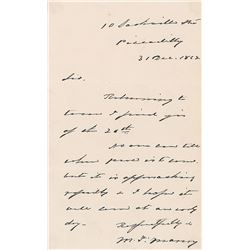 10 Sackville St
Piccadilly
31 Dec. 1862
Sir.
Returning to
town I find yrs
of the 20th
No one can tell
when peace is to come.
but it is approaching
rapidly & I hope it
will come at an early
day.
Respectfully &
M. F. Maury